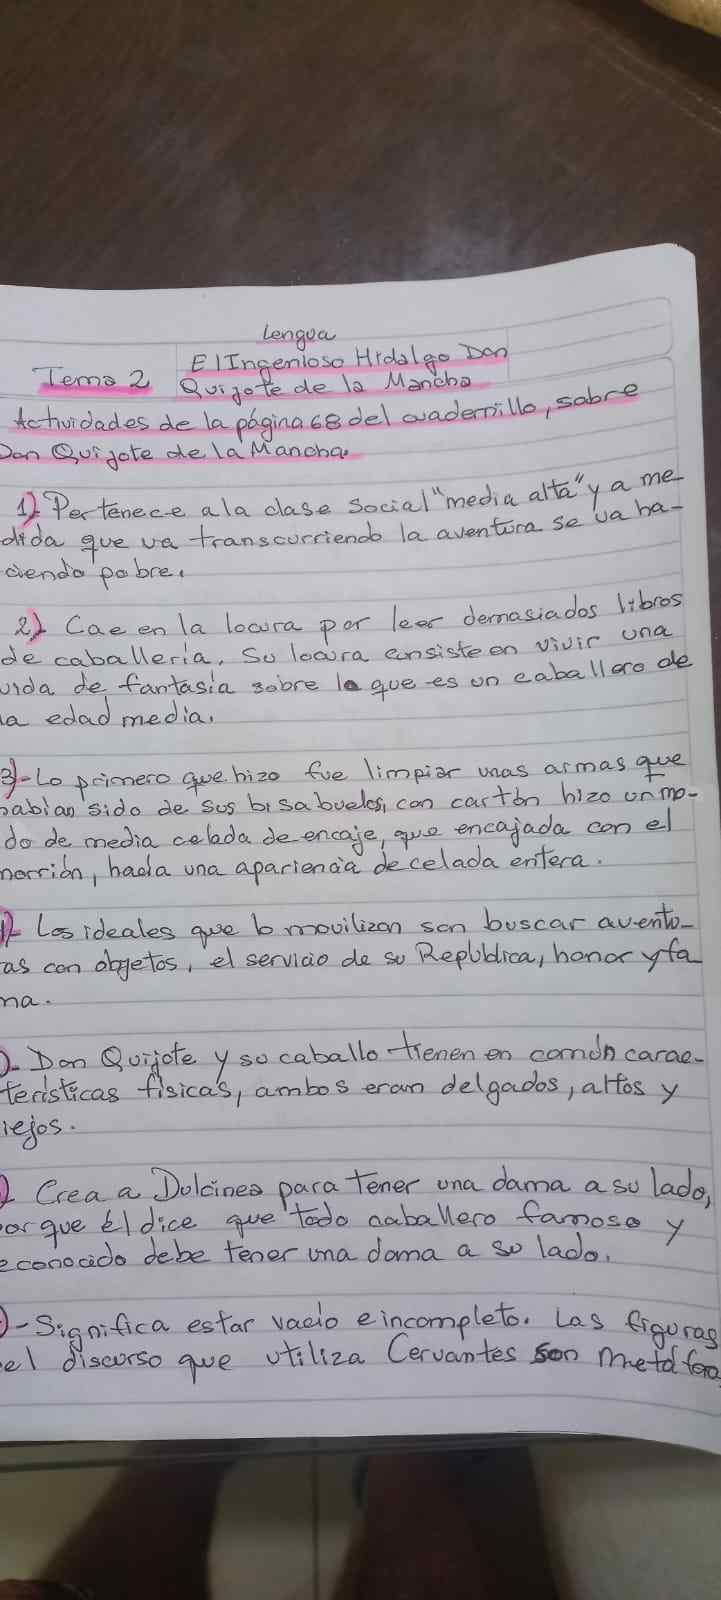 Lengua
Tema 2
El Ingenioso Hidalgo Don
Quijote de la Mancha
Actividades de la página 68 del cuadernillo, sobre
Don Quijote de la Mancha.
1) Pertenece a la clase social "media alta" y a me-
dida que va transcurriendo la aventura se va ha-
ciendo pobre.
2) Cae en la locura por leer demasiados libros
de caballería. Su locura consiste en vivir una
vida de fantasía sobre lo que es un caballero de
la edad media.
3)-Lo primero que hizo fue limpiar unas armas que
habían sido de sus bisabuelos, con cartón hizo un mo-
do de media celada de encaje, que encajada con el
morrión, hacía una apariencia de celada entera.
)- Los ideales que lo movilizan son buscar aventu-
as con objetos, el servicio de su República, honor y fa
ma.
)- Don Quijote y su caballo tienen en común carac-
terísticas físicas, ambos eran delgados, altos y
iejos.
) Crea a Dulcinea para tener una dama a su lado,
orque él dice que todo caballero famoso y
econocido debe tener una dama a su lado.
)-Significa estar vacío e incompleto. Las figuras
el discurso que utiliza Cervantes son metáfora